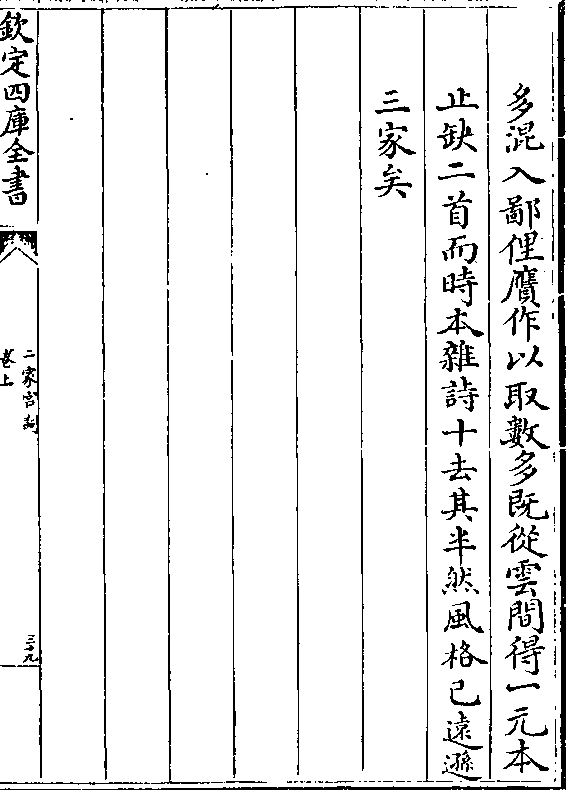 多混入鄙俚贋作以取數多既從雲間得一元本
止缺二首而時本雜詩十去其半然風格已遠遜
三家矣
欽定四庫全書
二家宫詞
卷上
三十九